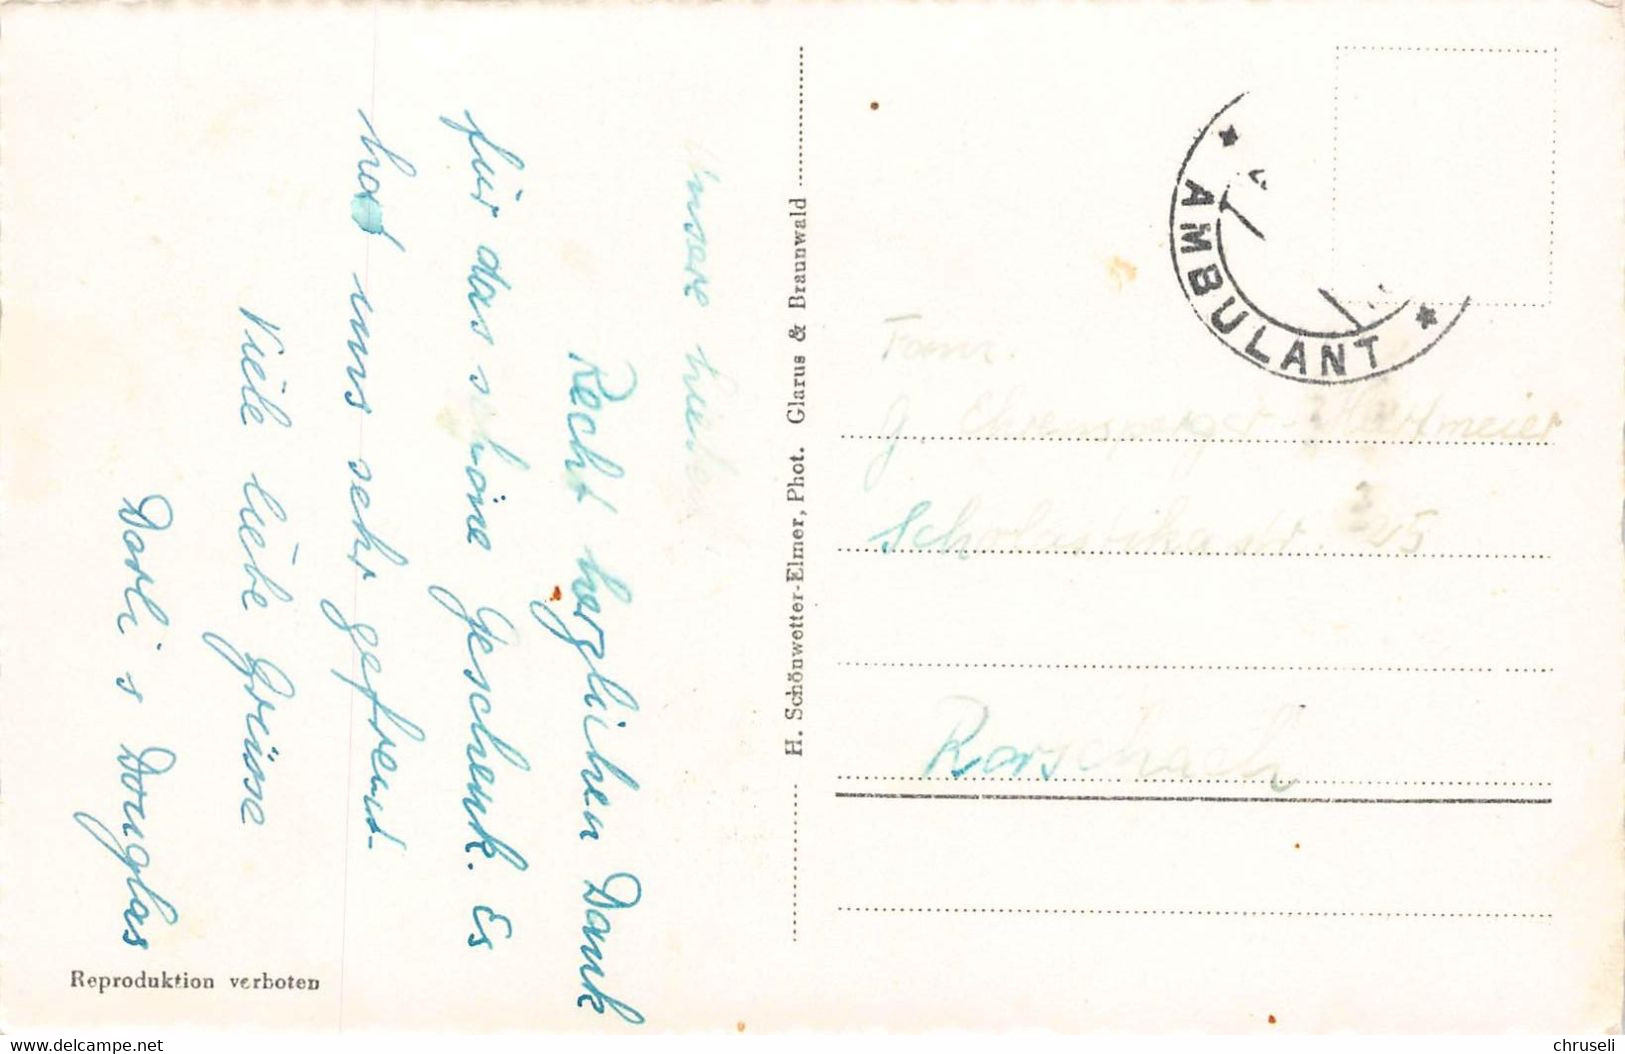 Unsere Lieben
Recht herzlichen Dank
für das schöne Geschenk. Es
hat uns sehr gefreut.
Viele liebe Grüsse
Dorli s Douglas
Reproduktion verboten
H. Schönwetter-Elmer, Phot. Glarus & Braunwald
AMBULANT
Fam.
G. Ehrensperger-Hartmeier
Scholastikastr. 25
Rorschach
www.delcampe.net
chruseli